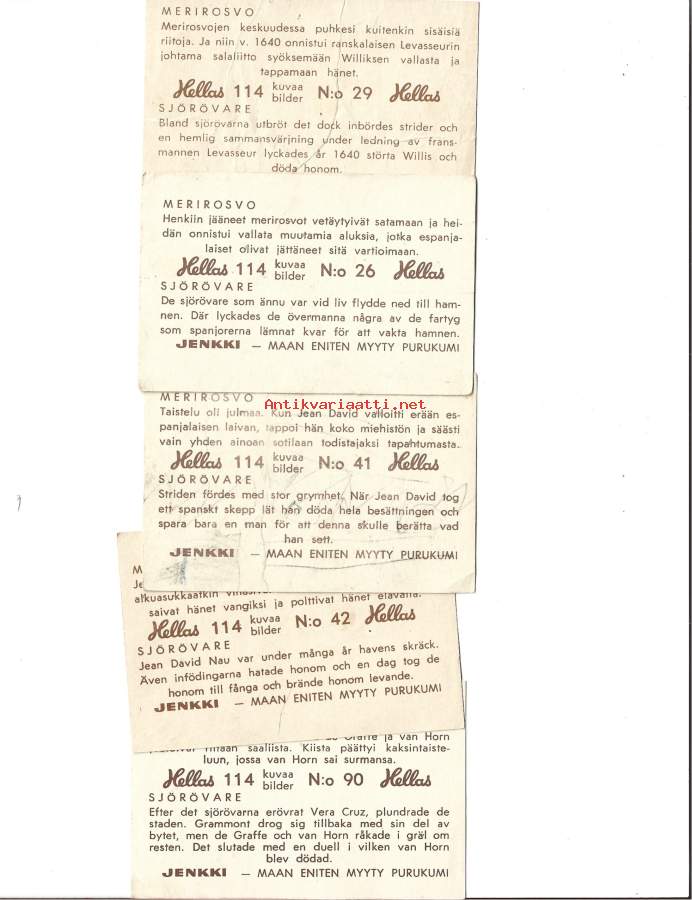 MERIROSVO
Merirosvojen keskuudessa puhkesi kuitenkin sisäisiä
riitoja. Ja niin v. 1640 onnistui ranskalaisen Levasseurin
johtama salaliitto syöksemään Williksen vallasta ja
tappamaan hänet.
Hellas 114 kuvaa bilder N:o 29 Hellas
SJÖRÖVARE
Bland sjörövarna utbröt det dock inbördes strider och
en hemlig sammansvärjning under ledning av frans-
mannen Levasseur lyckades år 1640 störta Willis och
döda honom.
MERIROSVO
Henkiin jääneet merirosvot vetäytyivät satamaan ja hei-
dän onnistui vallata muutamia aluksia, jotka espanja-
laiset olivat jättäneet sitä vartioimaan.
Hellas 114 kuvaa bilder N:o 26 Hellas
SJÖRÖVARE
De sjörövare som ännu var vid liv flydde ned till ham-
nen. Där lyckades de övermanna några av de fartyg
som spanjorerna lämnat kvar för att vakta hamnen.
JENKKI — MAAN ENITEN MYYTY PURUKUMI
MERIROSVO
Antikvariaatti.net
Taistelu oli julmaa. Kun Jean David valloitti erään es-
panjalaisen laivan, tappoi hän koko miehistön ja säästi
vain yhden ainoan sotilaan todistajaksi tapahtumasta.
Hellas 114 kuvaa bilder N:o 41 Hellas
SJÖRÖVARE
Striden fördes med stor grymhet. När Jean David tog
ett spanskt skepp lät han döda hela besättningen och
spara bara en man för att denna skulle berätta vad
han sett.
JENKKI — MAAN ENITEN MYYTY PURUKUMI
M
Je
alkuasukkaatkin
saivat hänet vangiksi ja polttivat hänet elävältä.
Hellas 114 kuvaa bilder N:o 42 Hellas
SJÖRÖVARE
Jean David Nau var under många år havens skräck.
Även infödingarna hatade honom och en dag tog de
honom till fånga och brände honom levande.
JENKKI — MAAN ENITEN MYYTY PURUKUMI
Graffe ja van Horn
riitaan saaliista. Kiista päättyi kaksintaiste-
luun, jossa van Horn sai surmansa.
Hellas 114 kuvaa bilder N:o 90 Hellas
SJÖRÖVARE
Efter det sjörövarna erövrat Vera Cruz, plundrade de
staden. Grammont drog sig tillbaka med sin del av
bytet, men de Graffe och van Horn råkade i gräl om
resten. Det slutade med en duell i vilken van Horn
blev dödad.
JENKKI — MAAN ENITEN MYYTY PURUKUMI